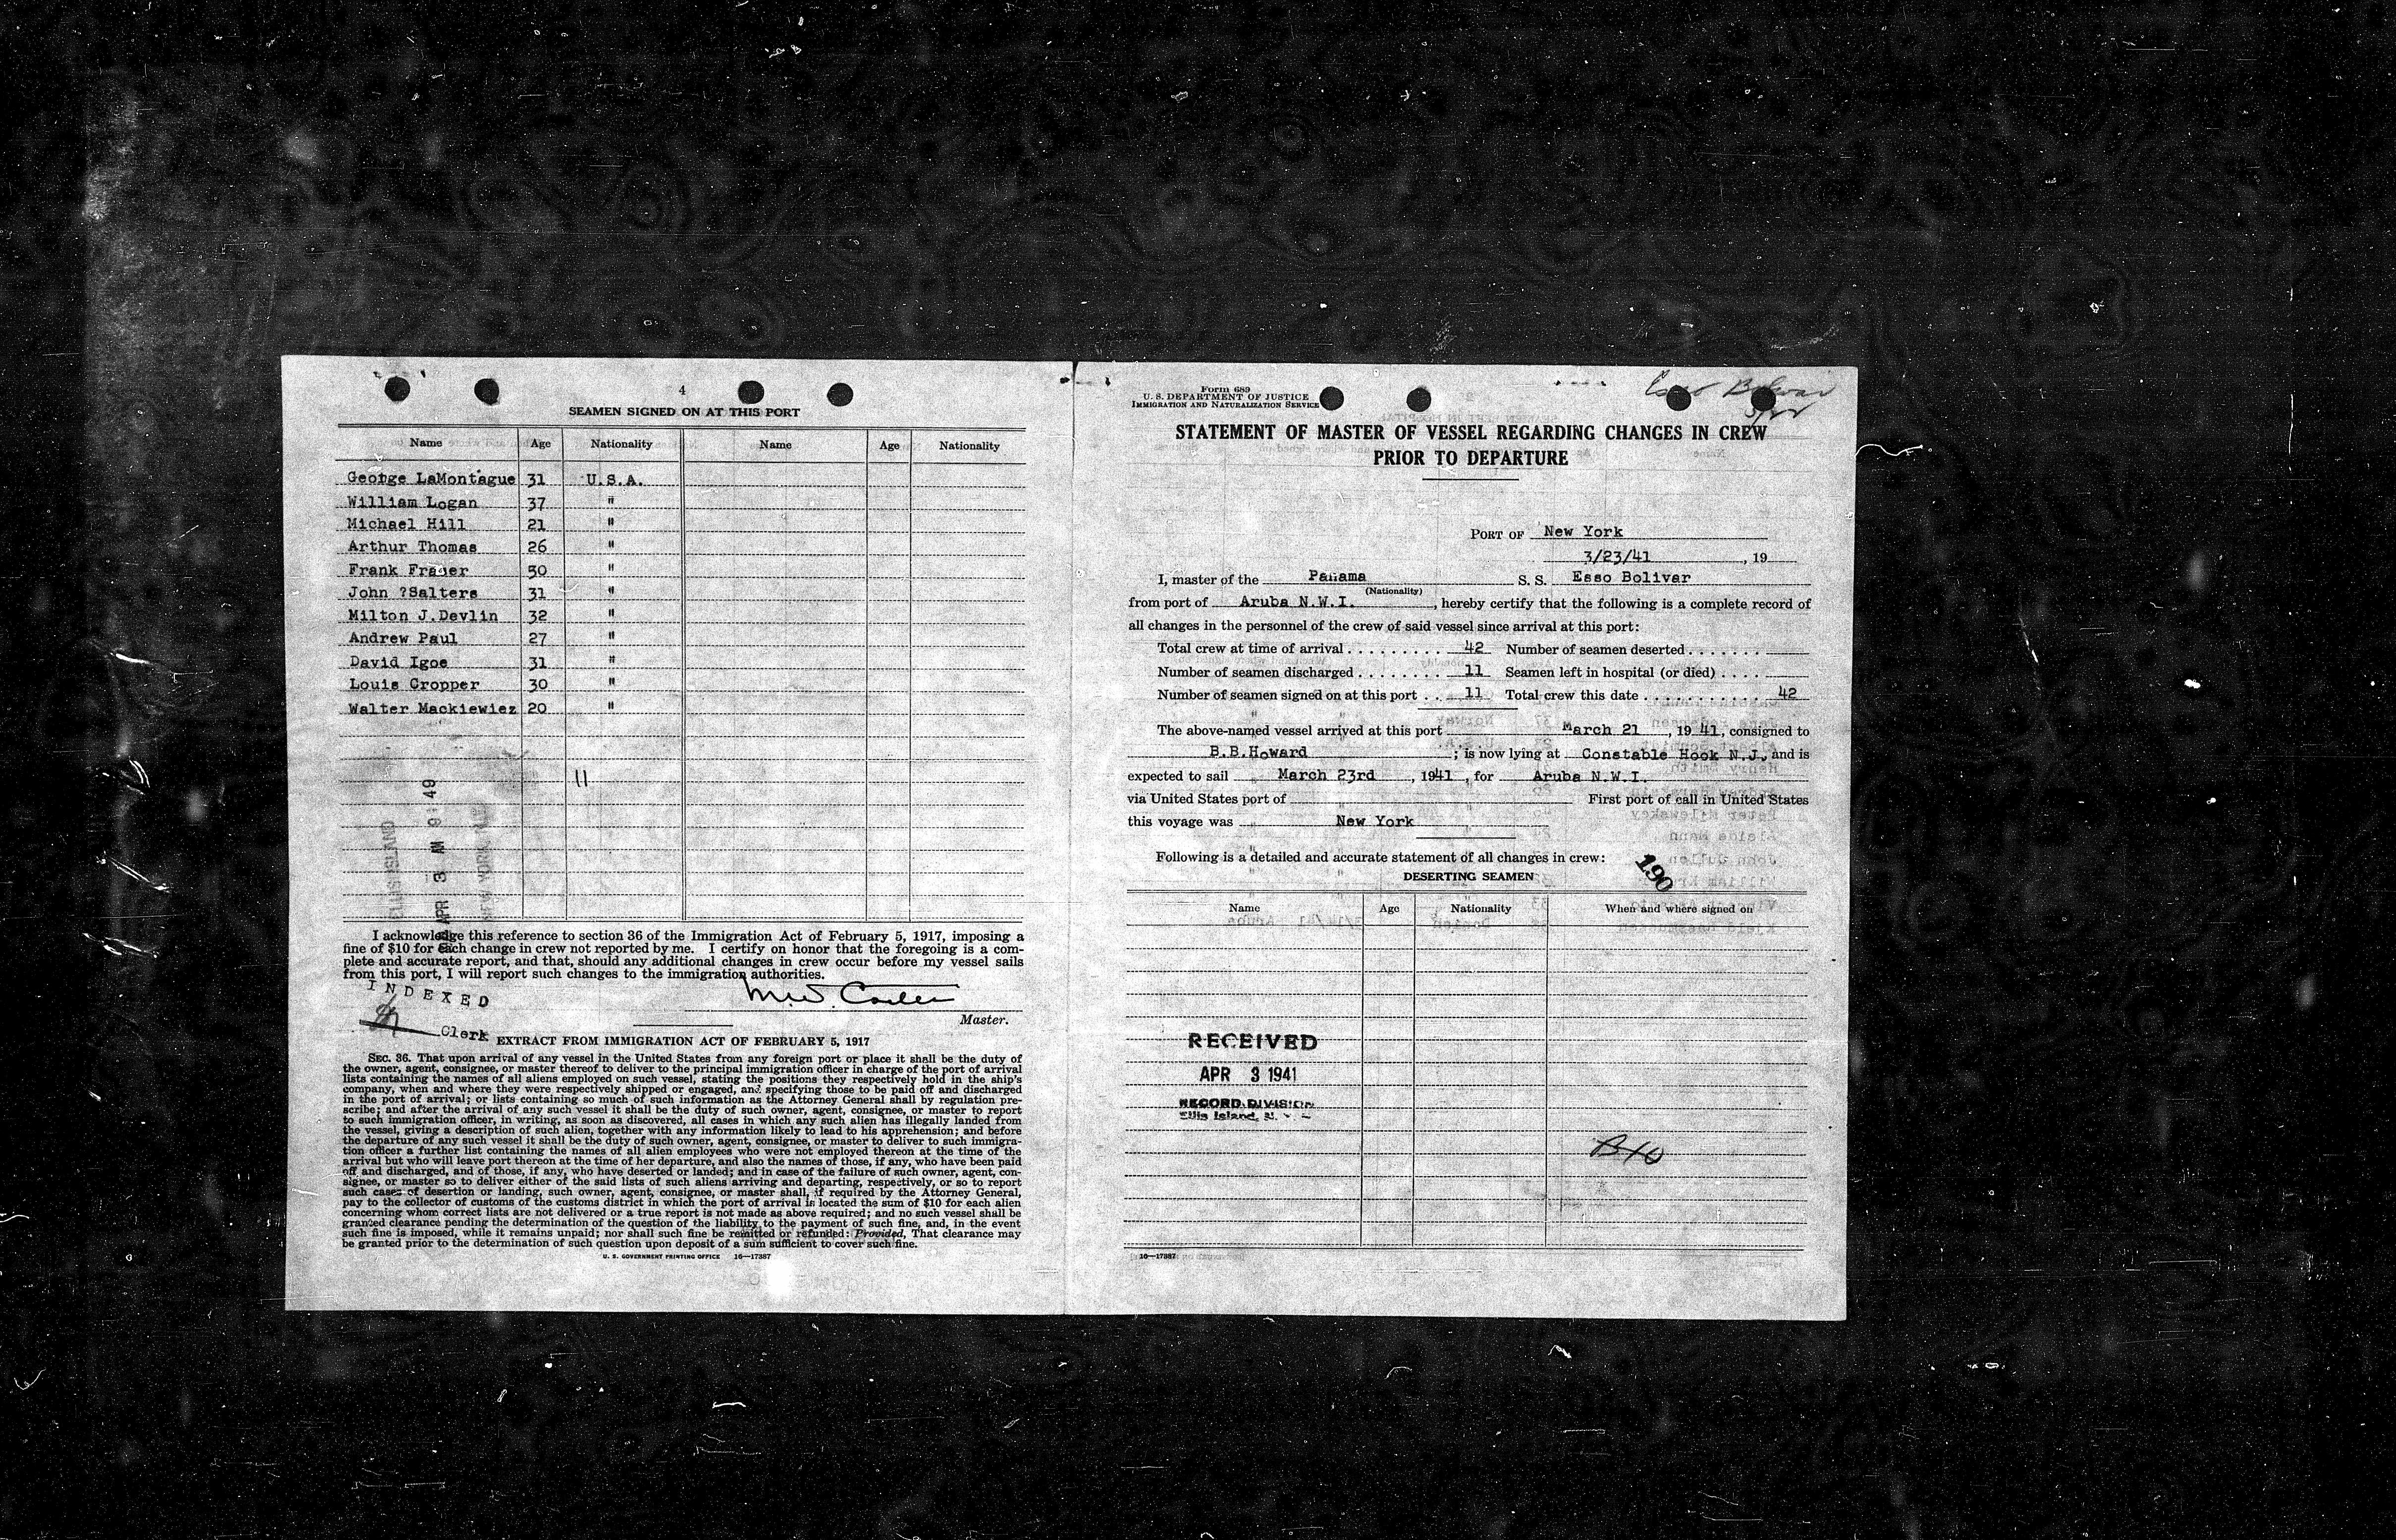 4
SEAMEN SIGNED ON AT THIS PORT
Name Age Nationality Name Age Nationality
George LaMontague 31 U.S.A.
William Logan 37 "
Michael Hill 21 "
Arthur Thomas 26 "
Frank Fraser 50 "
John ?Salters 31 "
Milton J.Devlin 32 "
Andrew Paul 27 "
David Igoe 31 "
Louis Cropper 30 "
Walter Mackiewiez 20 "
11
ELLIS ISLAND
APR 3 AM 9:49
NEW YORK
I acknowledge this reference to section 36 of the Immigration Act of February 5, 1917, imposing a
fine of $10 for each change in crew not reported by me. I certify on honor that the foregoing is a com-
plete and accurate report, and that, should any additional changes in crew occur before my vessel sails
from this port, I will report such changes to the immigration authorities.
INDEXED
Master.
Clerk
EXTRACT FROM IMMIGRATION ACT OF FEBRUARY 5, 1917
SEC. 36. That upon arrival of any vessel in the United States from any foreign port or place it shall be the duty of
the owner, agent, consignee, or master thereof to deliver to the principal immigration officer in charge of the port of arrival
lists containing the names of all aliens employed on such vessel, stating the positions they respectively hold in the ship's
company, when and where they were respectively shipped or engaged, and specifying those to be paid off and discharged
in the port of arrival; or lists containing so much of such information as the Attorney General shall by regulation pre-
scribe; and after the arrival of any such vessel it shall be the duty of such owner, agent, consignee, or master to report
to such immigration officer, in writing, as soon as discovered, all cases in which any such alien has illegally landed from
the vessel, giving a description of such alien, together with any information likely to lead to his apprehension; and before
the departure of any such vessel it shall be the duty of such owner, agent, consignee, or master to deliver to such immigra-
tion officer a further list containing the names of all alien employees who were not employed thereon at the time of the
arrival but who will leave port thereon at the time of her departure, and also the names of those, if any, who have been paid
off and discharged, and of those, if any, who have deserted or landed; and in case of the failure of such owner, agent, con-
signee, or master so to deliver either of the said lists of such aliens arriving and departing, respectively, or so to report
such cases of desertion or landing, such owner, agent, consignee, or master shall, if required by the Attorney General,
pay to the collector of customs of the customs district in which the port of arrival is located the sum of $10 for each alien
concerning whom correct lists are not delivered or a true report is not made as above required; and no such vessel shall be
granted clearance pending the determination of the question of the liability to the payment of such fine, and, in the event
such fine is imposed, while it remains unpaid; nor shall such fine be remitted or refunded: Provided, That clearance may
be granted prior to the determination of such question upon deposit of a sum sufficient to cover such fine.
U. S. GOVERNMENT PRINTING OFFICE 16—17387
Form 689
U. S. DEPARTMENT OF JUSTICE
IMMIGRATION AND NATURALIZATION SERVICE
Esso Bolivar
STATEMENT OF MASTER OF VESSEL REGARDING CHANGES IN CREW
PRIOR TO DEPARTURE
PORT OF New York
3/23/41, 19
I, master of the Panama S. S. Esso Bolivar
(Nationality)
from port of Aruba N.W.I., hereby certify that the following is a complete record of
all changes in the personnel of the crew of said vessel since arrival at this port:
Total crew at time of arrival 42 Number of seamen deserted
Number of seamen discharged 11 Seamen left in hospital (or died)
Number of seamen signed on at this port 11 Total crew this date 42
The above-named vessel arrived at this port March 21, 19 41, consigned to
B.B.Howard; is now lying at Constable Hook N.J., and is
expected to sail March 23rd, 1941, for Aruba N.W.I.
via United States port of First port of call in United States
this voyage was New York
Following is a detailed and accurate statement of all changes in crew:
190
DESERTING SEAMEN
Name Age Nationality When and where signed on
RECEIVED
APR 3 1941
RECORD DIVISION
Ellis Island,
16—17387